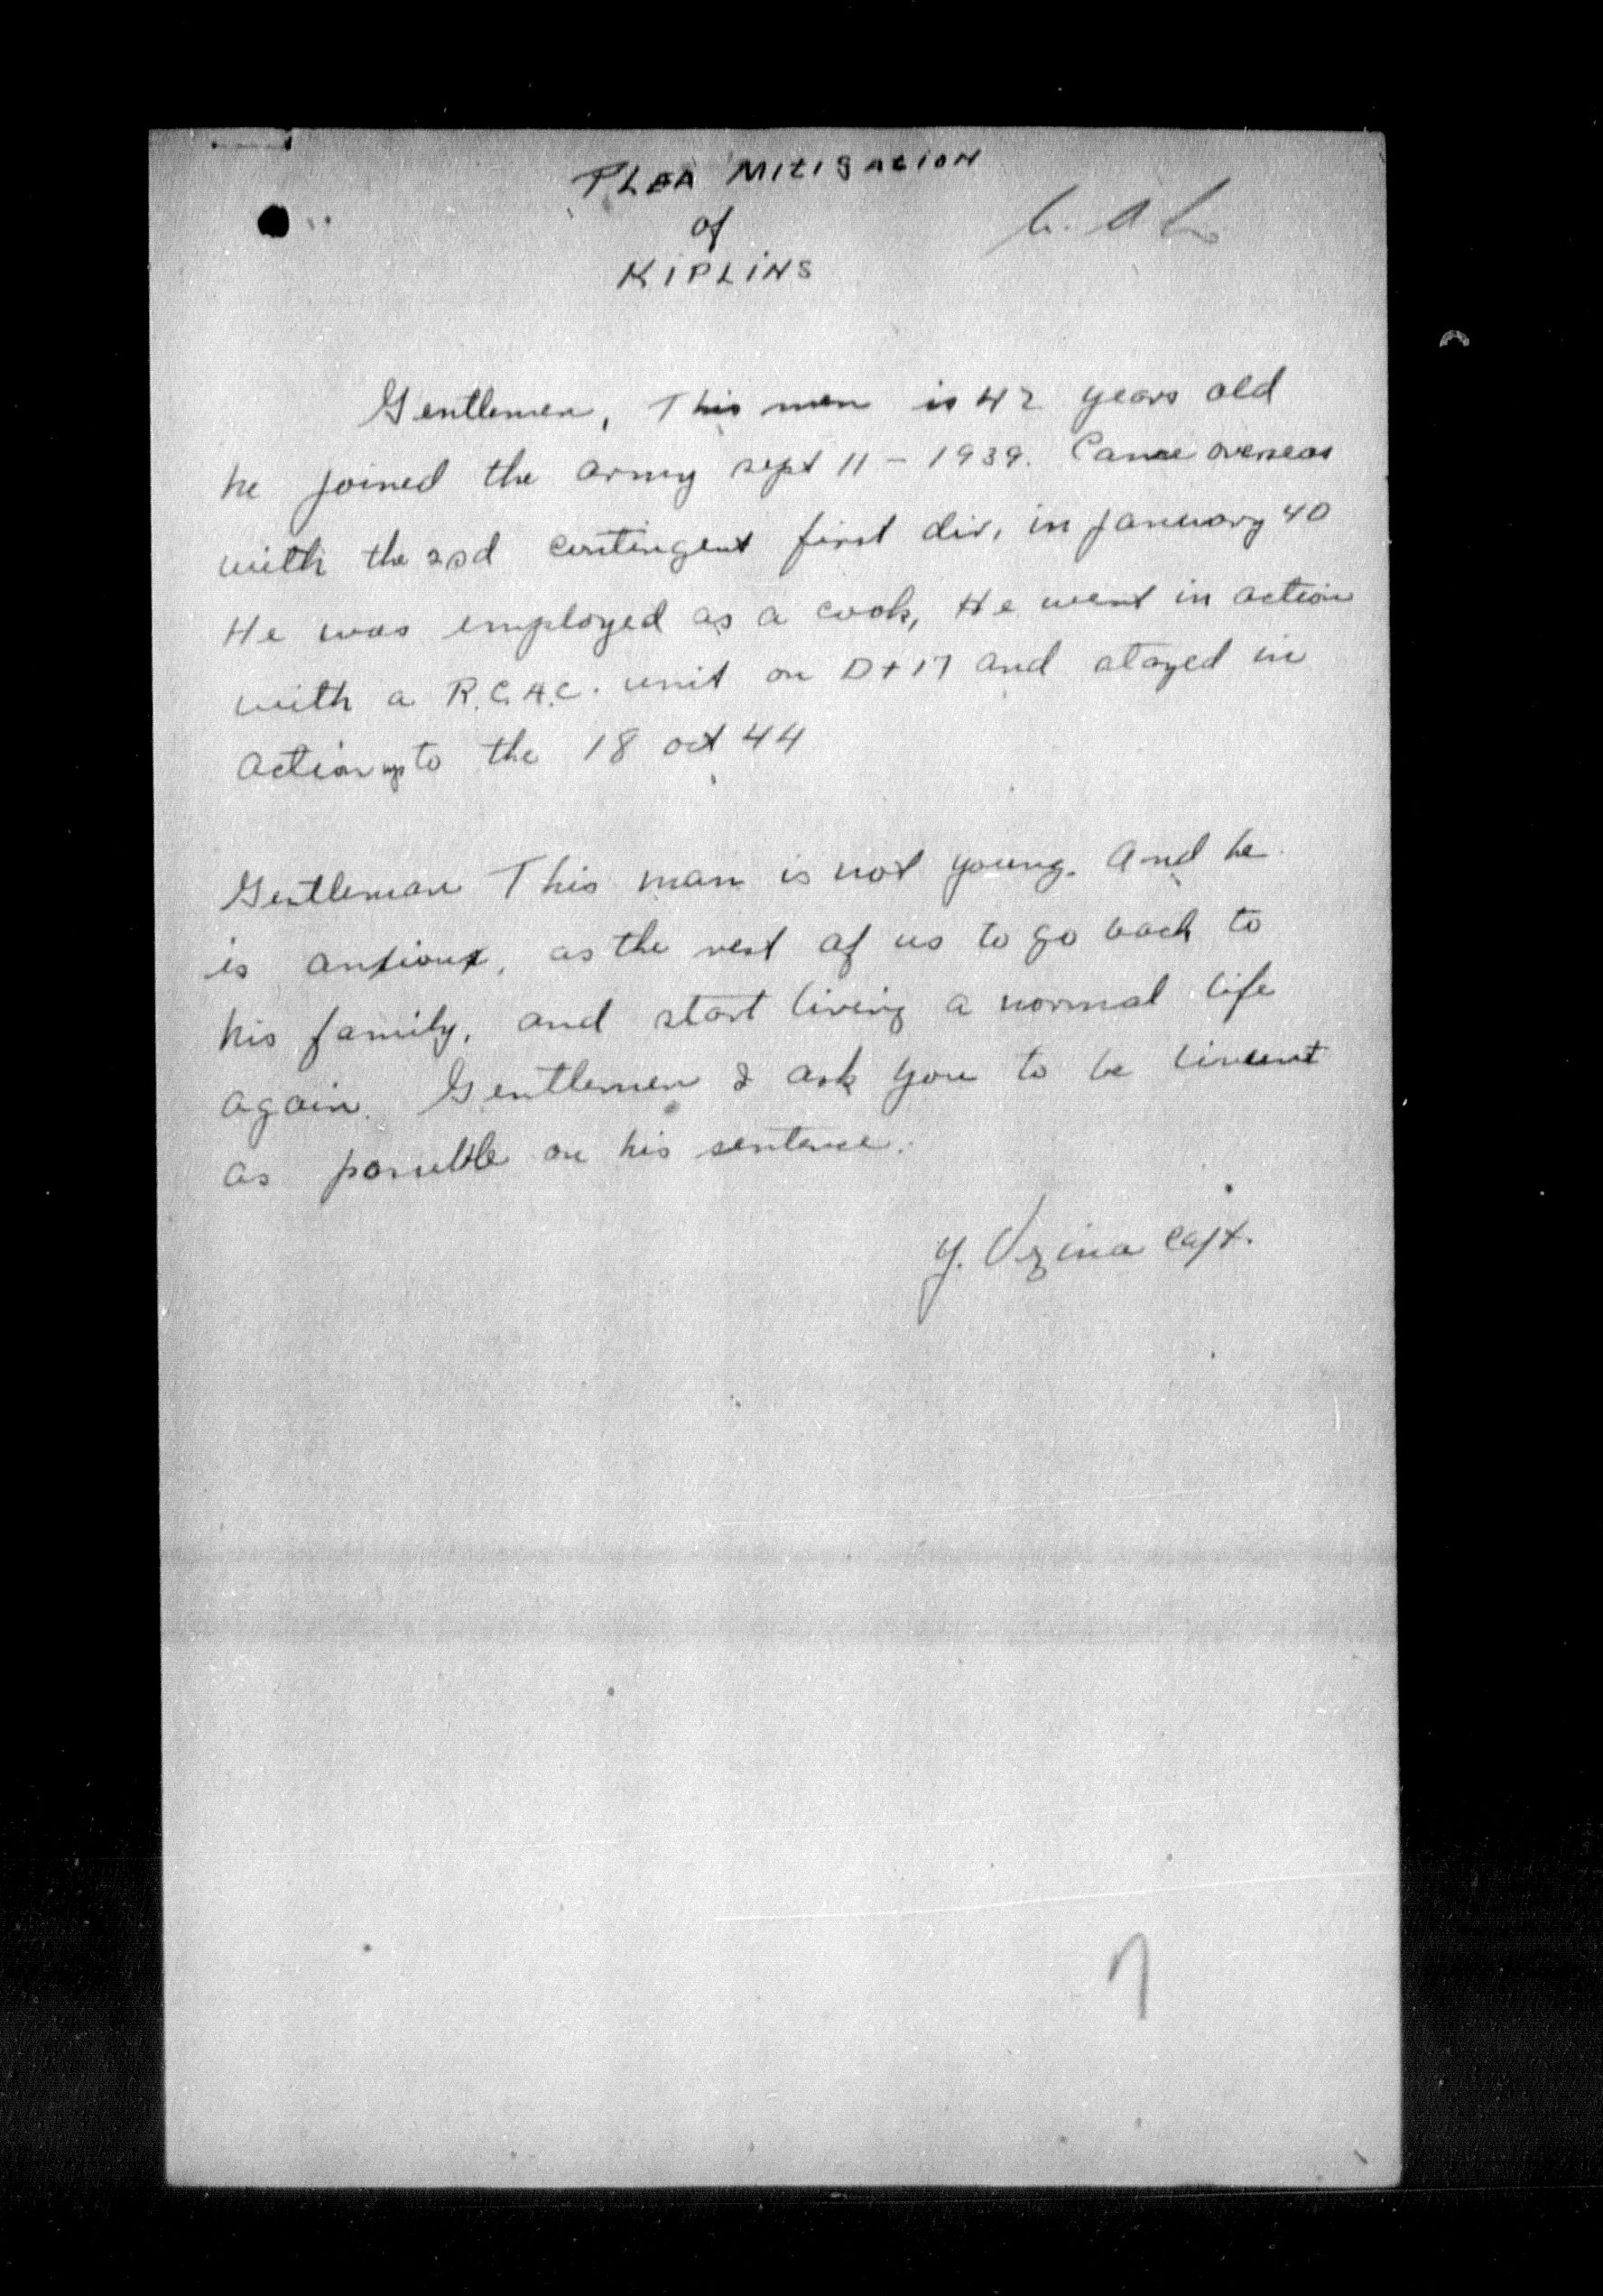 PLEA MITIGATION
of
KIPLING
Gentlemen, This man is 42 years old
he joined the army sept 11 - 1939. Came overseas
with the 2nd contingent first div, in january 40
He was employed as a cook, He went in action
with a R.C.A.C. unit on D+17 and stayed in
action up to the 18 oct 44
Gentleman This man is not young. And he
is anxious, as the rest of us to go back to
his family, and start living a normal life
again. Gentlemen I ask you to be
as possible on his sentence.
Y. Vezina Capt.
7